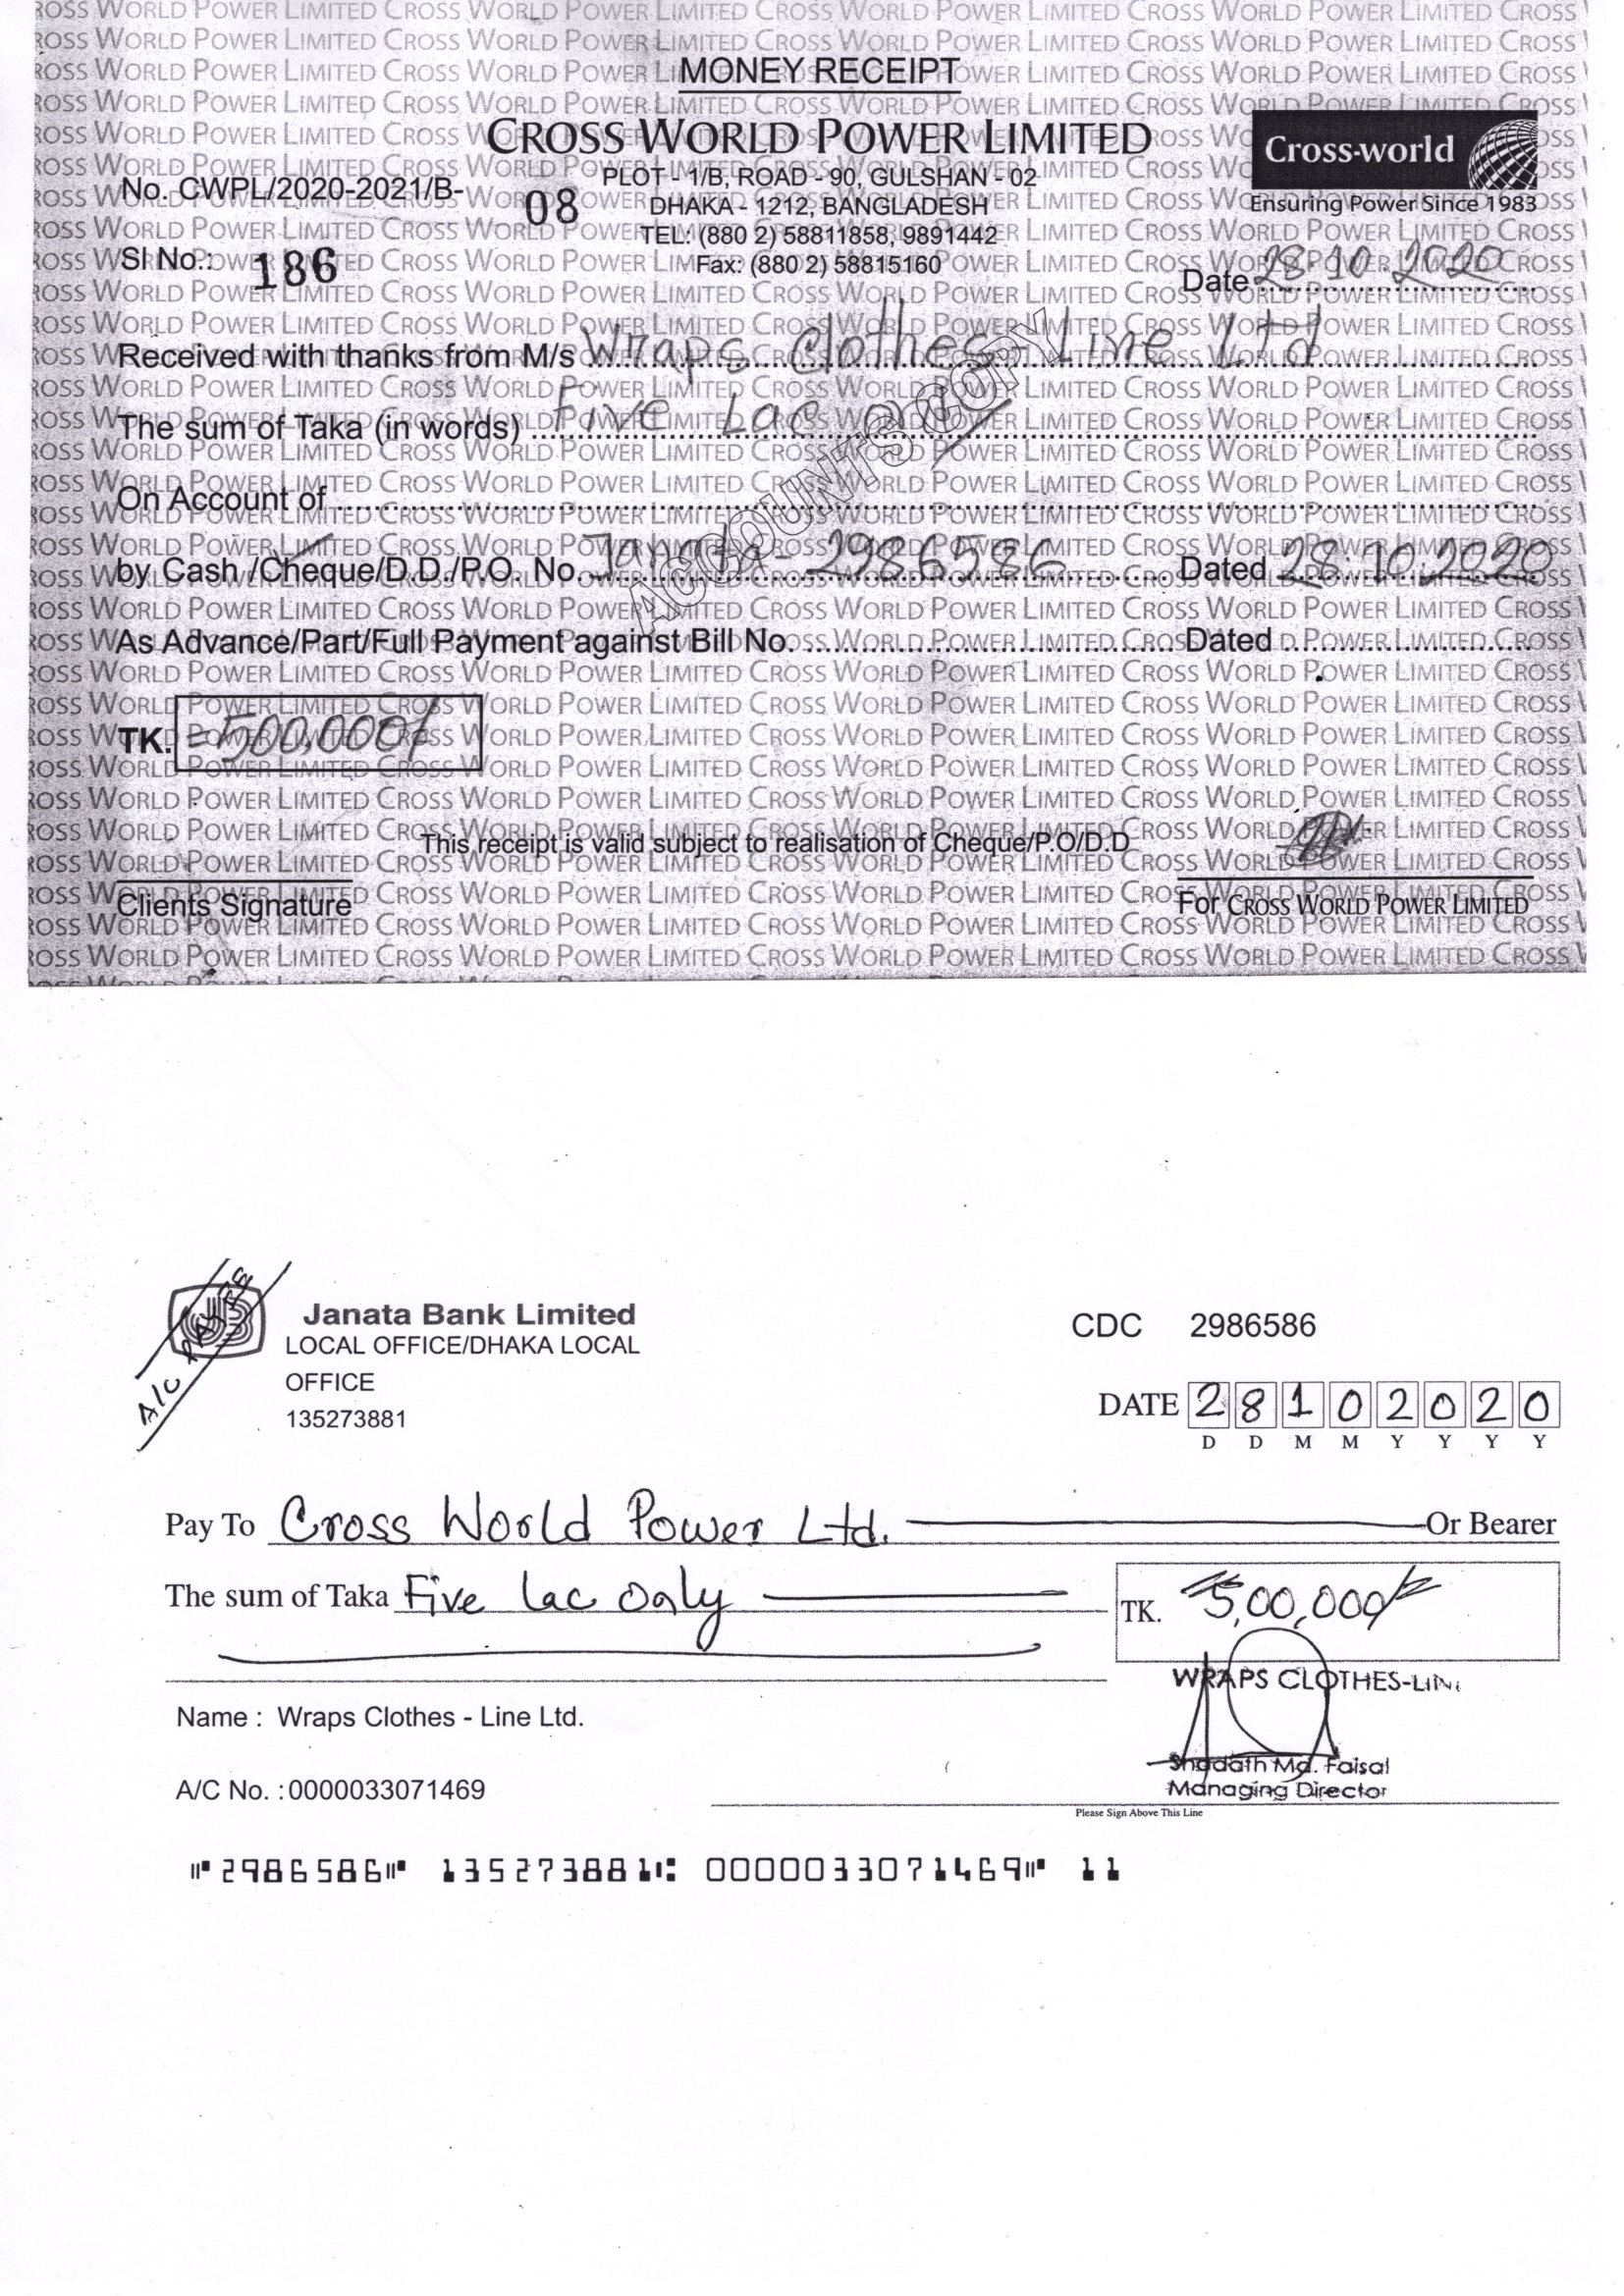 MONEY RECEIPT
CROSS WORLD POWER LIMITED
Cross-world
Ensuring Power Since 1983
PLOT - 1/B, ROAD - 90, GULSHAN - 02
No. CWPL/2020-2021/B- 08
DHAKA - 1212, BANGLADESH
TEL: (880 2) 58811858, 9891442
Sl No.: 186
Fax: (880 2) 58815160
Date 28.10.2020
Received with thanks from M/s Wraps Clothes-Line Ltd
The sum of Taka (in words) Five Lac
ACCOUNTS COPY
On Account of
by Cash /Cheque/D.D./P.O. No. Janata 2986586 Dated 28.10.2020
As Advance/Part/Full Payment against Bill No. Dated
TK. =500,000/
This receipt is valid subject to realisation of Cheque/P.O/D.D
Clients Signature
For CROSS WORLD POWER LIMITED
A/C PAYEE
Janata Bank Limited
LOCAL OFFICE/DHAKA LOCAL
OFFICE
135273881
CDC 2986586
DATE 2 8 1 0 2 0 2 0
D D M M Y Y Y Y
Pay To Cross World Power Ltd. Or Bearer
The sum of Taka Five Lac Only
TK. 5,00,000/=
WRAPS CLOTHES-LINE
Name : Wraps Clothes - Line Ltd.
Shadath Md. Faisal
Managing Director
A/C No. :0000033071469
Please Sign Above This Line
⑈2986586⑈ 135273881⑆ 0000033071469⑈ 11